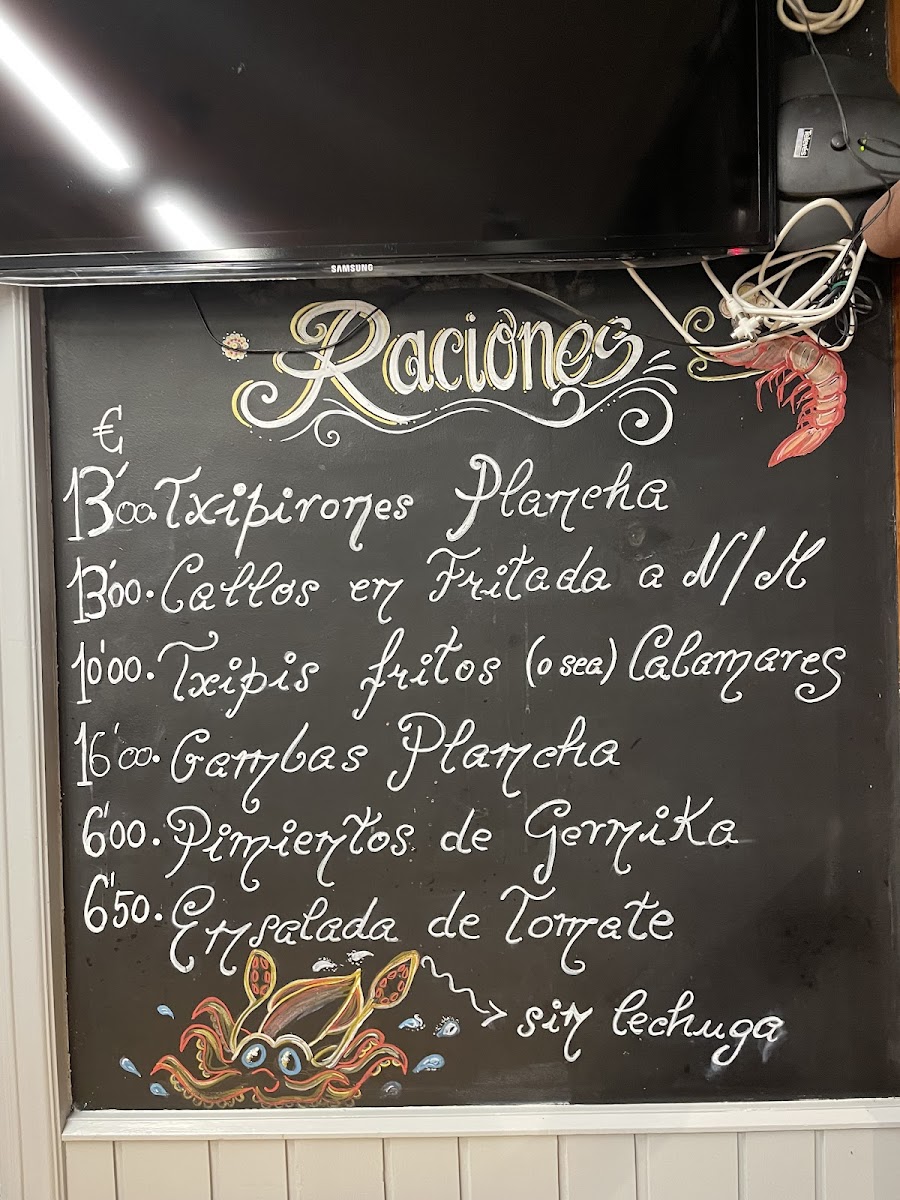 SAMSUNG
Raciones
€
13'00. Txipirones Plancha
13'00. Callos en Fritada a N/M
10'00. Txipis fritos (o sea) Calamares
16'00. Gambas Plancha
6'00. Pimientos de Gernika
6'50. Ensalada de Tomate
sin lechuga